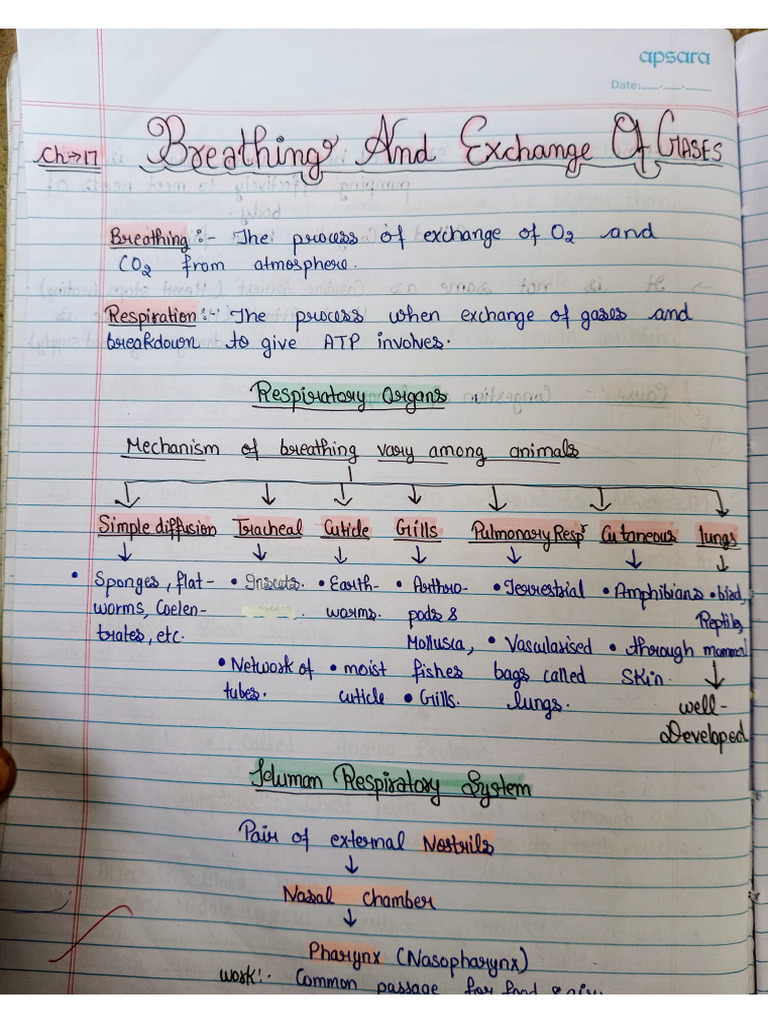 apsara
Date:
Ch→17 Breathing And Exchange Of GASES
Breathing :- The process of exchange of O2 and
CO2 from atmosphere.
Respiration :- The process when exchange of gases and
breakdown to give ATP involves.
Respiratory Organs
Mechanism of breathing vary among animals
Simple diffusion Tracheal Cuticle Grills Pulmonary Respr Cutaneous lungs
↓ ↓ ↓ ↓ ↓ ↓ ↓
• Sponges, flat- • Insects. • Earth- • Arthro- • Terrestrial • Amphibians • bird,
worms, Coelen- worms. pods & Reptiles,
trates, etc. Mollusca, • Vascularised • through mammal
• Network of • moist fishes bags called skin. ↓
tubes. cuticle • Grills. lungs. well-
Developed
Human Respiratory System
Pair of external Nostrils
↓
Nasal Chamber
↓
Pharynx (Nasopharynx)
work:- Common passage for food & air.